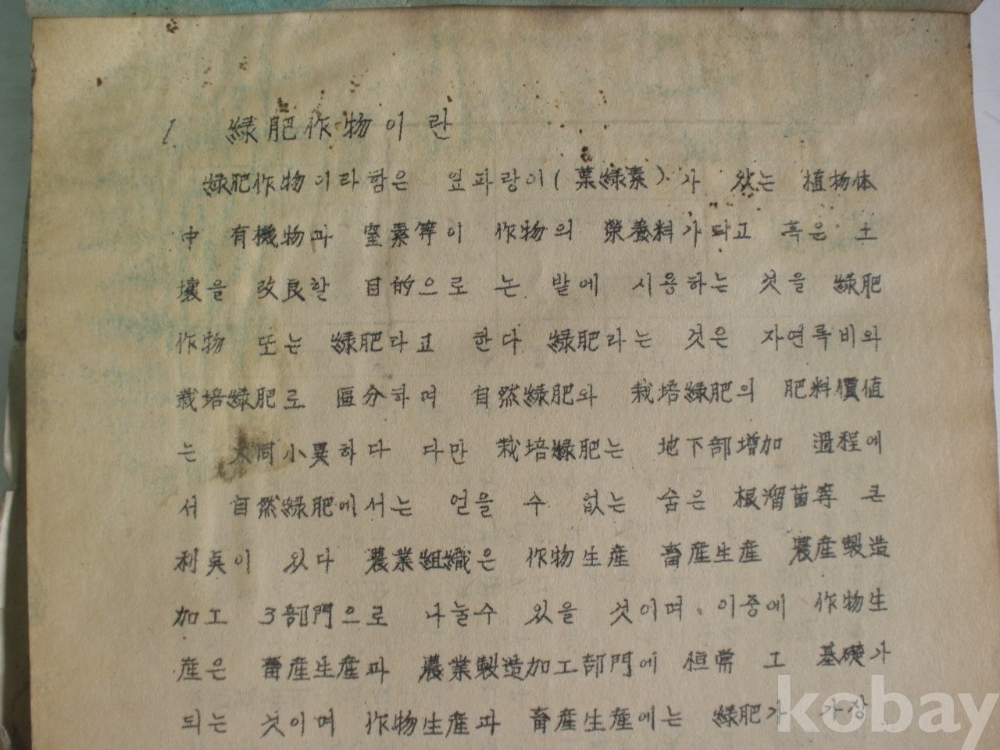 1. 綠肥作物이란
綠肥作物이라함은 잎파랑이(葉綠素)가 있는 植物体
中 有機物과 窒素等이 作物의 榮養料가되고 혹은 土
壤을 改良할 目的으로 논 밭에 시용하는 것을 綠肥
作物 또는 綠肥다고 한다 綠肥라는 것은 자연록비와
栽培綠肥로 區分하며 自然綠肥와 栽培綠肥의 肥料價値
는 大同小異하다 다만 栽培綠肥는 地下部增加 過程에
서 自然綠肥에서는 얻을 수 없는 숨은 根溜菌等 큰
利点이 있다 農業組織은 作物生産 畜産生産 農産製造
加工 3部門으로 나눌수 있을 것이며, 이중에 作物生
産은 畜産生産과 農業製造加工部門에 恒常 工 基礎가
되는 것이며 作物生産과 畜産生産에는 綠肥가 가장
kobay